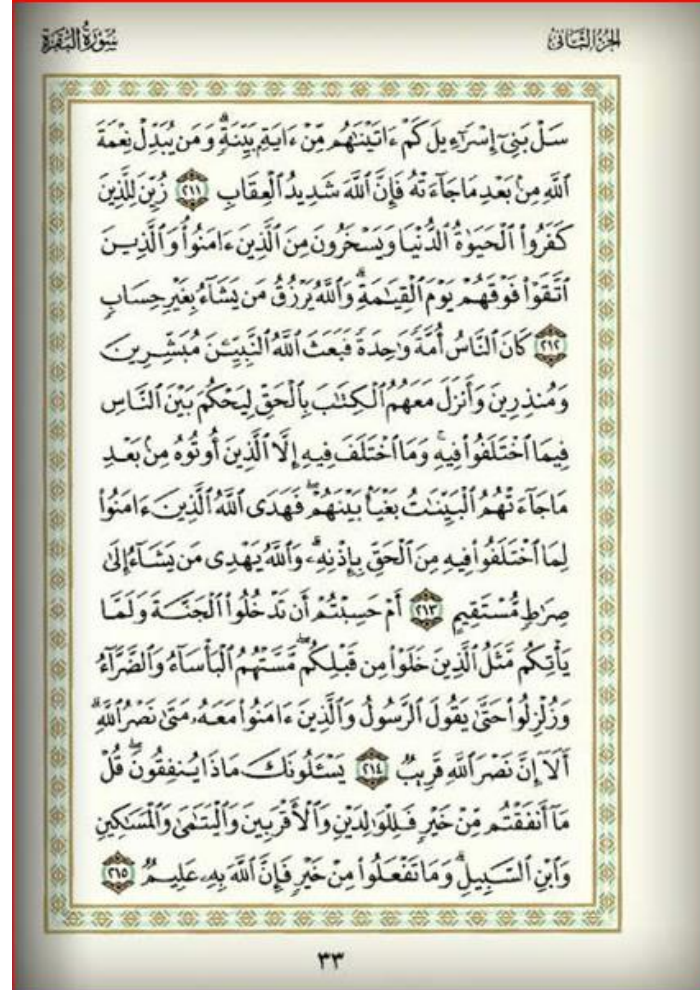 سُورَةُ البَقَرَة
الجزء الثَّانِى
سَلْ بَنِىٓ إِسْرَٰٓءِيلَ كَمْ ءَاتَيْنَٰهُم مِّنْ ءَايَةٍۭ بَيِّنَةٍۗ وَمَن يُبَدِّلْ نِعْمَةَ
ٱللَّهِ مِنۢ بَعْدِ مَا جَآءَتْهُ فَإِنَّ ٱللَّهَ شَدِيدُ ٱلْعِقَابِ ٢١١ زُيِّنَ لِلَّذِينَ
كَفَرُوا۟ ٱلْحَيَوٰةُ ٱلدُّنْيَا وَيَسْخَرُونَ مِنَ ٱلَّذِينَ ءَامَنُوا۟ۘ وَٱلَّذِينَ
ٱتَّقَوْا۟ فَوْقَهُمْ يَوْمَ ٱلْقِيَٰمَةِۗ وَٱللَّهُ يَرْزُقُ مَن يَشَآءُ بِغَيْرِ حِسَابٍ
٢١٢ كَانَ ٱلنَّاسُ أُمَّةً وَٰحِدَةً فَبَعَثَ ٱللَّهُ ٱلنَّبِيِّـۧنَ مُبَشِّرِينَ
وَمُنذِرِينَ وَأَنزَلَ مَعَهُمُ ٱلْكِتَٰبَ بِٱلْحَقِّ لِيَحْكُمَ بَيْنَ ٱلنَّاسِ
فِيمَا ٱخْتَلَفُوا۟ فِيهِۚ وَمَا ٱخْتَلَفَ فِيهِ إِلَّا ٱلَّذِينَ أُوتُوهُ مِنۢ بَعْدِ
مَا جَآءَتْهُمُ ٱلْبَيِّنَٰتُ بَغْيًۢا بَيْنَهُمْۖ فَهَدَى ٱللَّهُ ٱلَّذِينَ ءَامَنُوا۟
لِمَا ٱخْتَلَفُوا۟ فِيهِ مِنَ ٱلْحَقِّ بِإِذْنِهِۦۗ وَٱللَّهُ يَهْدِى مَن يَشَآءُ إِلَىٰ
صِرَٰطٍ مُّسْتَقِيمٍ ٢١٣ أَمْ حَسِبْتُمْ أَن تَدْخُلُوا۟ ٱلْجَنَّةَ وَلَمَّا
يَأْتِكُم مَّثَلُ ٱلَّذِينَ خَلَوْا۟ مِن قَبْلِكُمۖ مَّسَّتْهُمُ ٱلْبَأْسَآءُ وَٱلضَّرَّآءُ
وَزُلْزِلُوا۟ حَتَّىٰ يَقُولَ ٱلرَّسُولُ وَٱلَّذِينَ ءَامَنُوا۟ مَعَهُۥ مَتَىٰ نَصْرُ ٱللَّهِۗ
أَلَآ إِنَّ نَصْرَ ٱللَّهِ قَرِيبٌ ٢١٤ يَسْـَٔلُونَكَ مَاذَا يُنفِقُونَۖ قُلْ
مَآ أَنفَقْتُم مِّنْ خَيْرٍ فَلِلْوَٰلِدَيْنِ وَٱلْأَقْرَبِينَ وَٱلْيَتَٰمَىٰ وَٱلْمَسَٰكِينِ
وَٱبْنِ ٱلسَّبِيلِۗ وَمَا تَفْعَلُوا۟ مِنْ خَيْرٍ فَإِنَّ ٱللَّهَ بِهِۦ عَلِيمٌ ٢١٥
٣٣